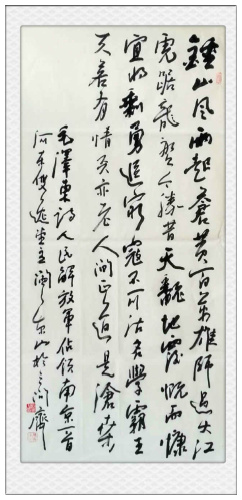 鍾山风雨起蒼黄百万雄师过大江
虎踞龍盤今勝昔天翻地覆慨而慷
宜将剩勇追窮寇不可沽名學霸王
天若有情天亦老人间正道是滄桑
毛澤東詩人民解放軍佔领南京一首
河東 堂主 山於三间齋